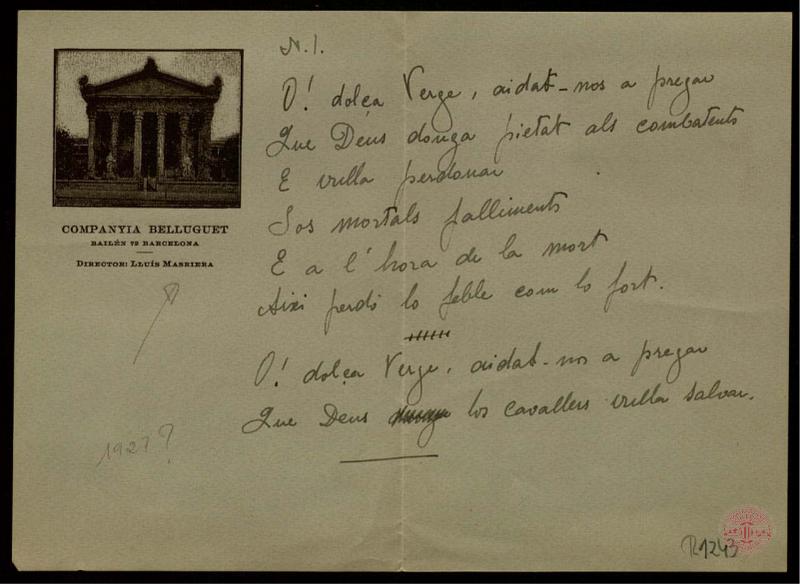 N. 1.
O! dolça Verge, aidat-nos a pregar
Que Déus donga pietat als combatents
E vulla perdonar
Sos mortals falliments
E a l'hora de la mort
Aixi perdó lo feble com lo fort.
O! dolça Verge, aidat-nos a pregar
Que Deus los cavallers vulla salvar.
COMPANYIA BELLUGUET
BAILÉN 72 BARCELONA
DIRECTOR: LLUÍS MASRIERA
1927?
R.1243